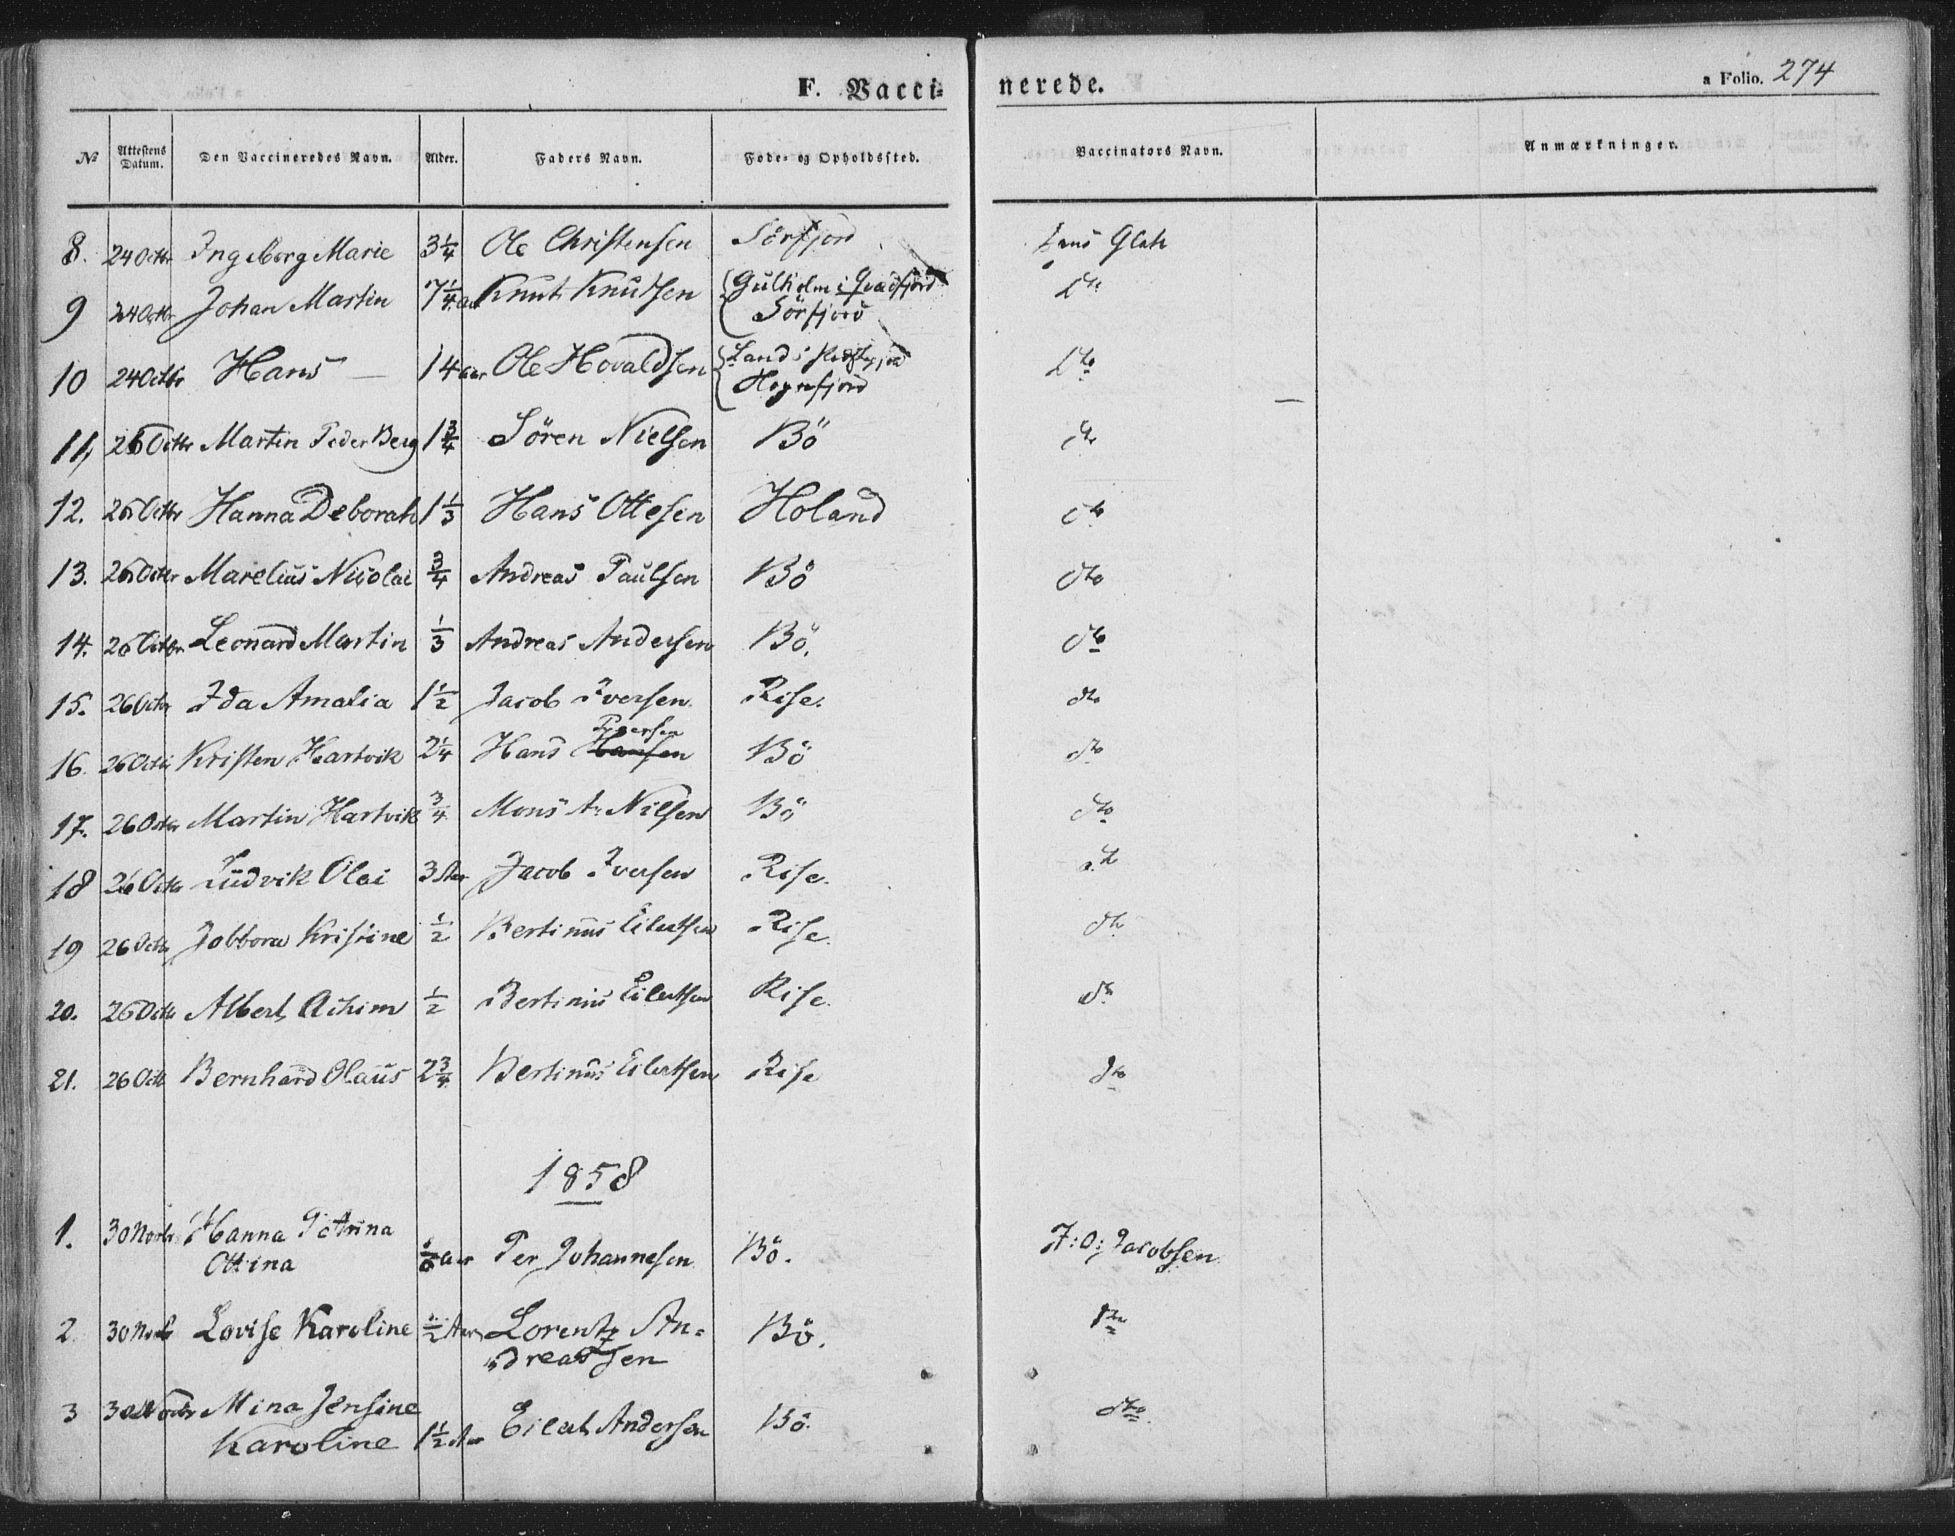 F. Vacci- nerede. a Folio. 274
No Attestens Datum. Den Vaccineredes Navn. Alder. Faders Navn. Føde- og Opholdssted. Vaccinators Navn. Anmærkninger.
8. 24 Octbr Ingeborg Marie 3 1/4 Ole Christensen Sörfjord Glah
9 24 Octbr Johan Martin 7 1/4 aar Knut Knutsen Gulholm i
Sörfjord Do
10 24 Octbr Hans — 14 aar Ole Hovaldsen Land i
Hognfjord Dto
11, 26 Octbr Martin Peder Berg 1 3/4 Sören Nielsen Bö dto
12. 26 Octbr Hanna Deborah 1 1/3 Hans Ottesen Holand dto
13. 26 Octbr Marelius Nicolai 3/4 Andreas Paulsen Bö dto
14. 26 Octbr Leonard Martin 1/3 Andreas Andersen Bö. dto
15. 26 Octbr Ida Amalia 1 1/2 Jacob Iversen Rise. dto
16. 26 Octbr Kristen Hartvik 2 1/4 Hans Hansen Bö dto
17. 26 Octbr Martin Hartvik 3/4 Mons A: Nilsen Bö dto
18 26 Octbr Ludvik Olai 3 Aar Jacob Iversen Rise. dto
19 26 Octbr Kristine 1/2 Bertinus Eilertsen Rise. dto
20. 26 Octbr Albert Achim 1/2 Bertinus Eilertsen Rise. dto
21. 26 Octb Bernhard Olaus 2 3/4 Bertinus Eilertsen Rise dto
1858
1. 30 Novbr Hanna Petrina
Ottina aar Per Johannesen Bö. J: O: Jacobsen
2. 30 Novb Lovise Karoline 1/2 Aar Lorentz An-
dreassen Bö. dto
3 30 Novbr Mina Jensine
Karoline 1 1/2 Aar Eilert Andersen Bö. dto